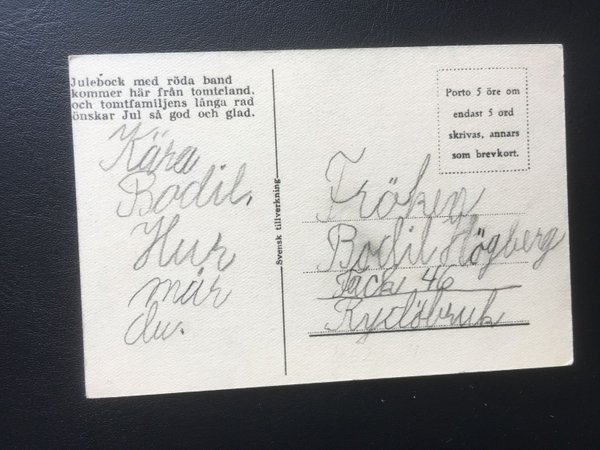 Julebock med röda band
kommer här från tomteland.
och tomtfamiljens långa rad
önskar Jul så god och glad.
Kära
Bodil.
Hur
mår
du.
Svensk tillverkning
Porto 5 öre om
endast 5 ord
skrivas, annars
som brevkort.
Fröken
Bodil Högberg
Fack 46
Rydöbruk